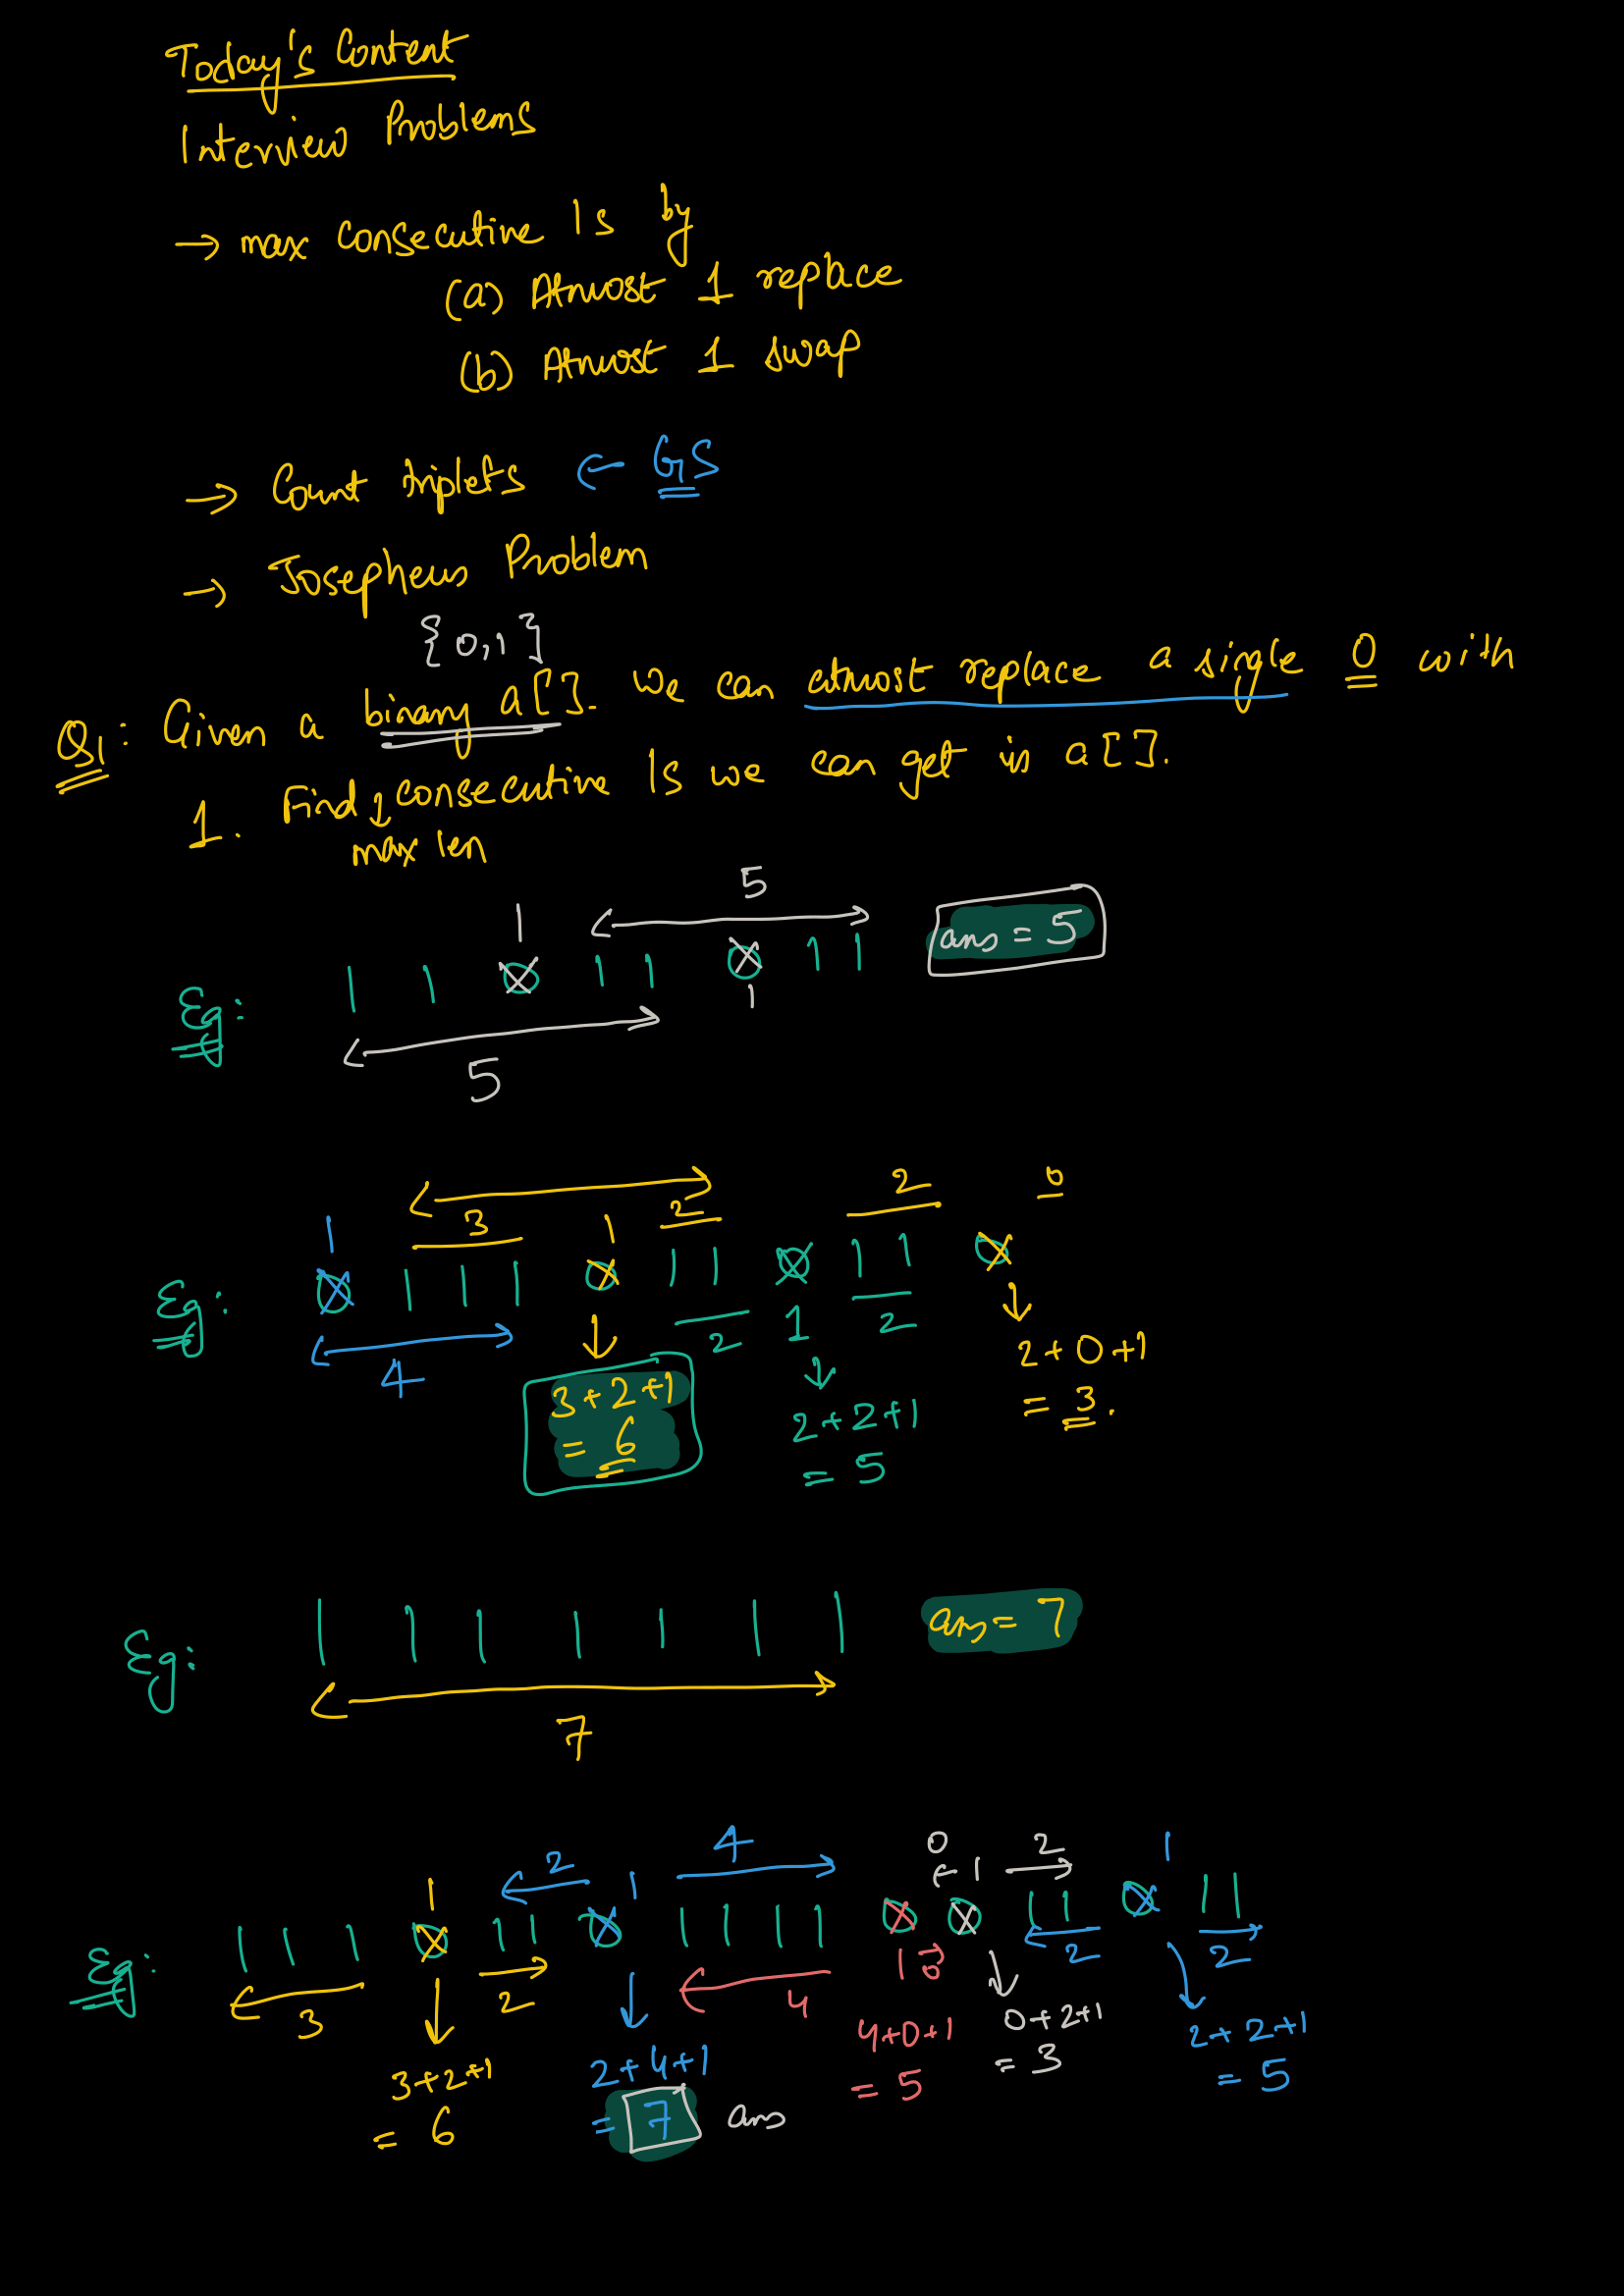 Today's Content
Interview Problems
→ max consecutive 1s by
(a) Atmost 1 replace
(b) Atmost 1 swap
→ Count triplets ← GS
→ Josepheus Problem
{0,1}
Q1: Given a binary a[]. We can atmost replace a single 0 with
1. Find ↓ consecutive 1s we can get in a[].
max len
1 5
Eg: 1 1 0 1 1 0 1 1 ans = 5
1
5
2 0
1 3 1 2
Eg: 0 1 1 1 0 1 1 0 1 1 0
4 2 1 2
3+2+1 = 6
2+2+1 = 5
2+0+1 = 3.
Eg: 1 1 1 1 1 1 1 ans = 7
7
1 2 1 4 0 1 2 1
Eg: 1 1 1 0 1 1 0 1 1 1 1 0 0 1 1 0 1 1
3 2 4 1 0 2 2
3+2+1 = 6
2+4+1 = 7 ans
4+0+1 = 5
0+2+1 = 3
2+2+1 = 5